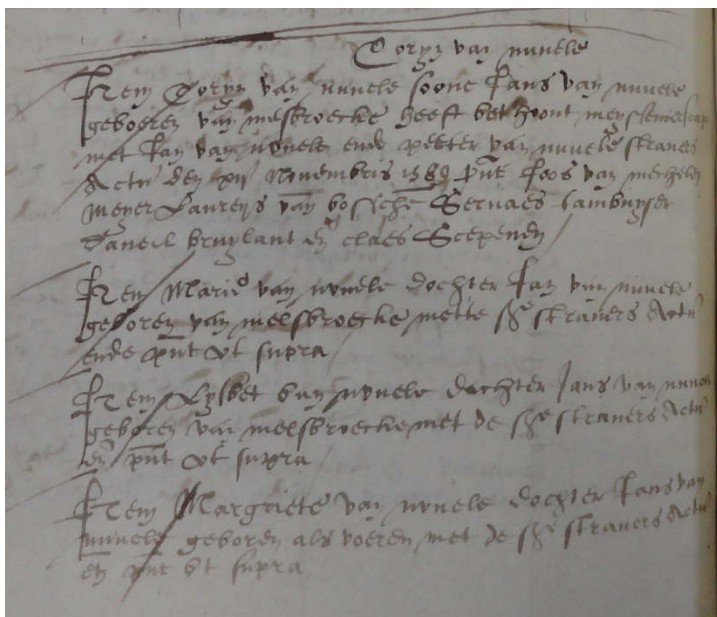 Coryn van nuvele
Item Coryn van nuvele soone Jans van nuvele
geboren van melsbroecke heeft bethoont
met Jan van nuvele ende peeter van nuvele
Actu den xij Novembris 1569 pnt Joos van mechelen
meyer Laureys van bossche Servaes Cambuyser
Daneel bruylant en claes Scepenen
Item Marie van nuvele dochter Jan van nuvele
geboren van melsbroecke mette Actu
ende pnt vt supra
Item Lysbet van nuvele dochter Jans van nuvele
geboren van melsbroecke met de Actu
en pnt vt supra
Item Margriete van nuvele dochter Jans van
nuvele geboren als voeren met de Actu
en pnt vt supra